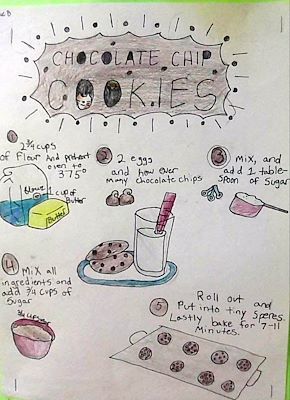 CHOCOLATE CHIP
COOKIES
1
2 3/4 cups
of flour and preheat
oven to
375°
flour
1 cup of
Butter
Butter
2
2 eggs
and how ever
many chocolate chips
3
Mix, and
add 1 table-
spoon of Sugar
4
Mix all
ingredients and
add 3/4 cups of
Sugar
3/4 cups
5
Roll out and
Put into tiny Speres.
Lastly bake for 7-11
Minutes.